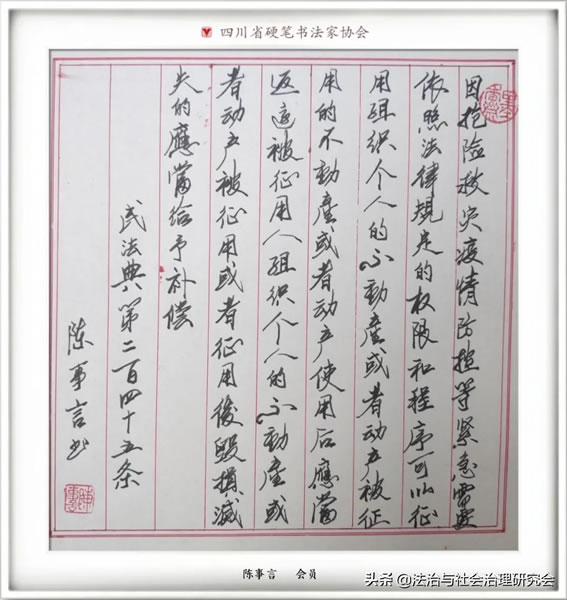 四川省硬笔书法家协会
因抢险救灾疫情防控等紧急需要
依照法律規定的权限和程序可以征
用组织个人的不動產或者动产被征
用的不動產或者动产使用后應當
返还被征用人组织个人的不動產或
者动产被征用或者征用後毁損滅
失的應當给予补偿
民法典第二百四十五条
陈事言书
陈事言 会员
头条@法治与社会治理研究会